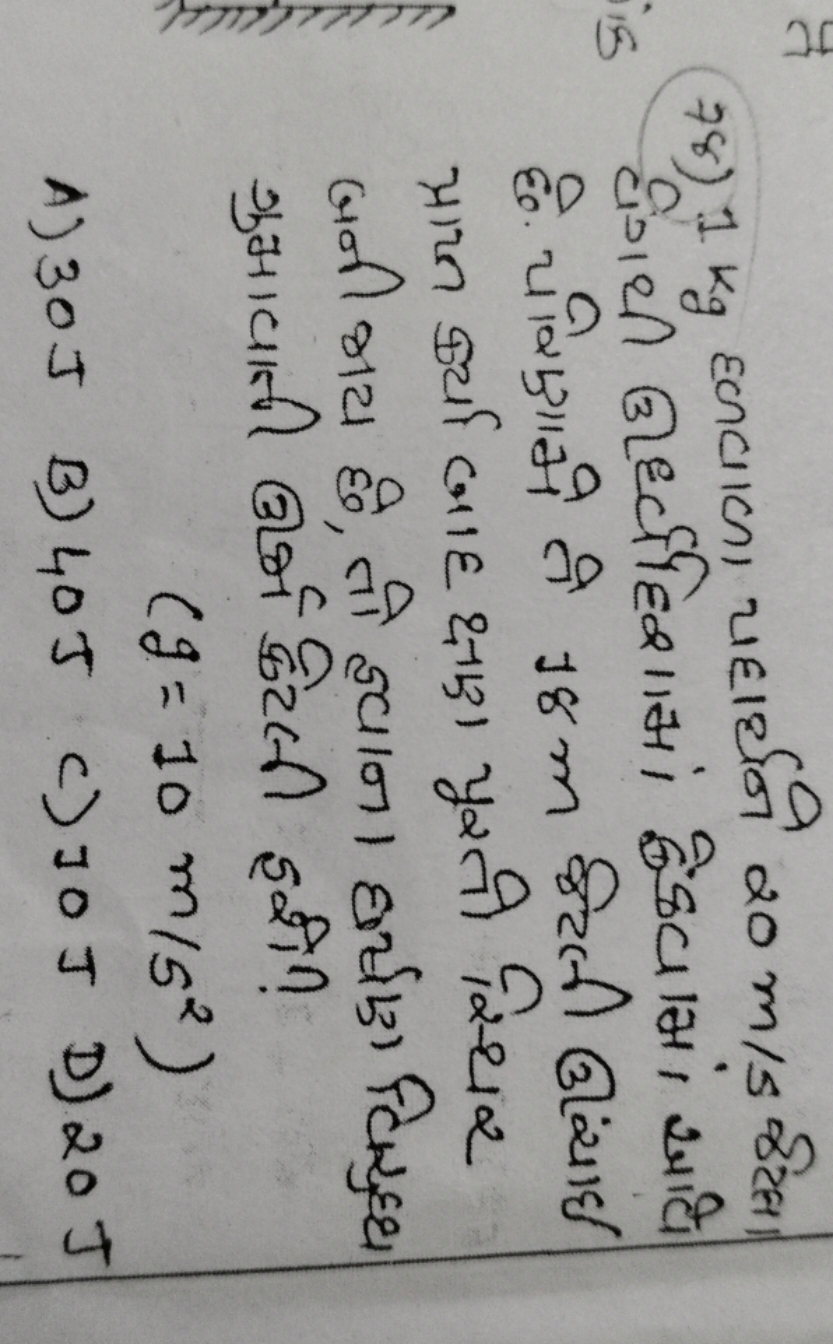 ૧૪) 1 kg દળવાળા પદાર્થને ૨૦ m/s જેટલા
વેગથી ઊર્ધ્વદિશામાં ફેંકવામાં આવે
છે. પરિણામે તે 18 m જેટલી ઊંચાઈ
પ્રાપ્ત કર્યા બાદ ક્ષણ પુરતો સ્થિર
બની જાય છે, તો હવાના ઘર્ષણ વિરુદ્ધ
ગુમાવાતી ઊર્જા કેટલી હશે?
(g = 10 m/s²)
A) 30 J B) 40 J C) 10 J D) 20 J